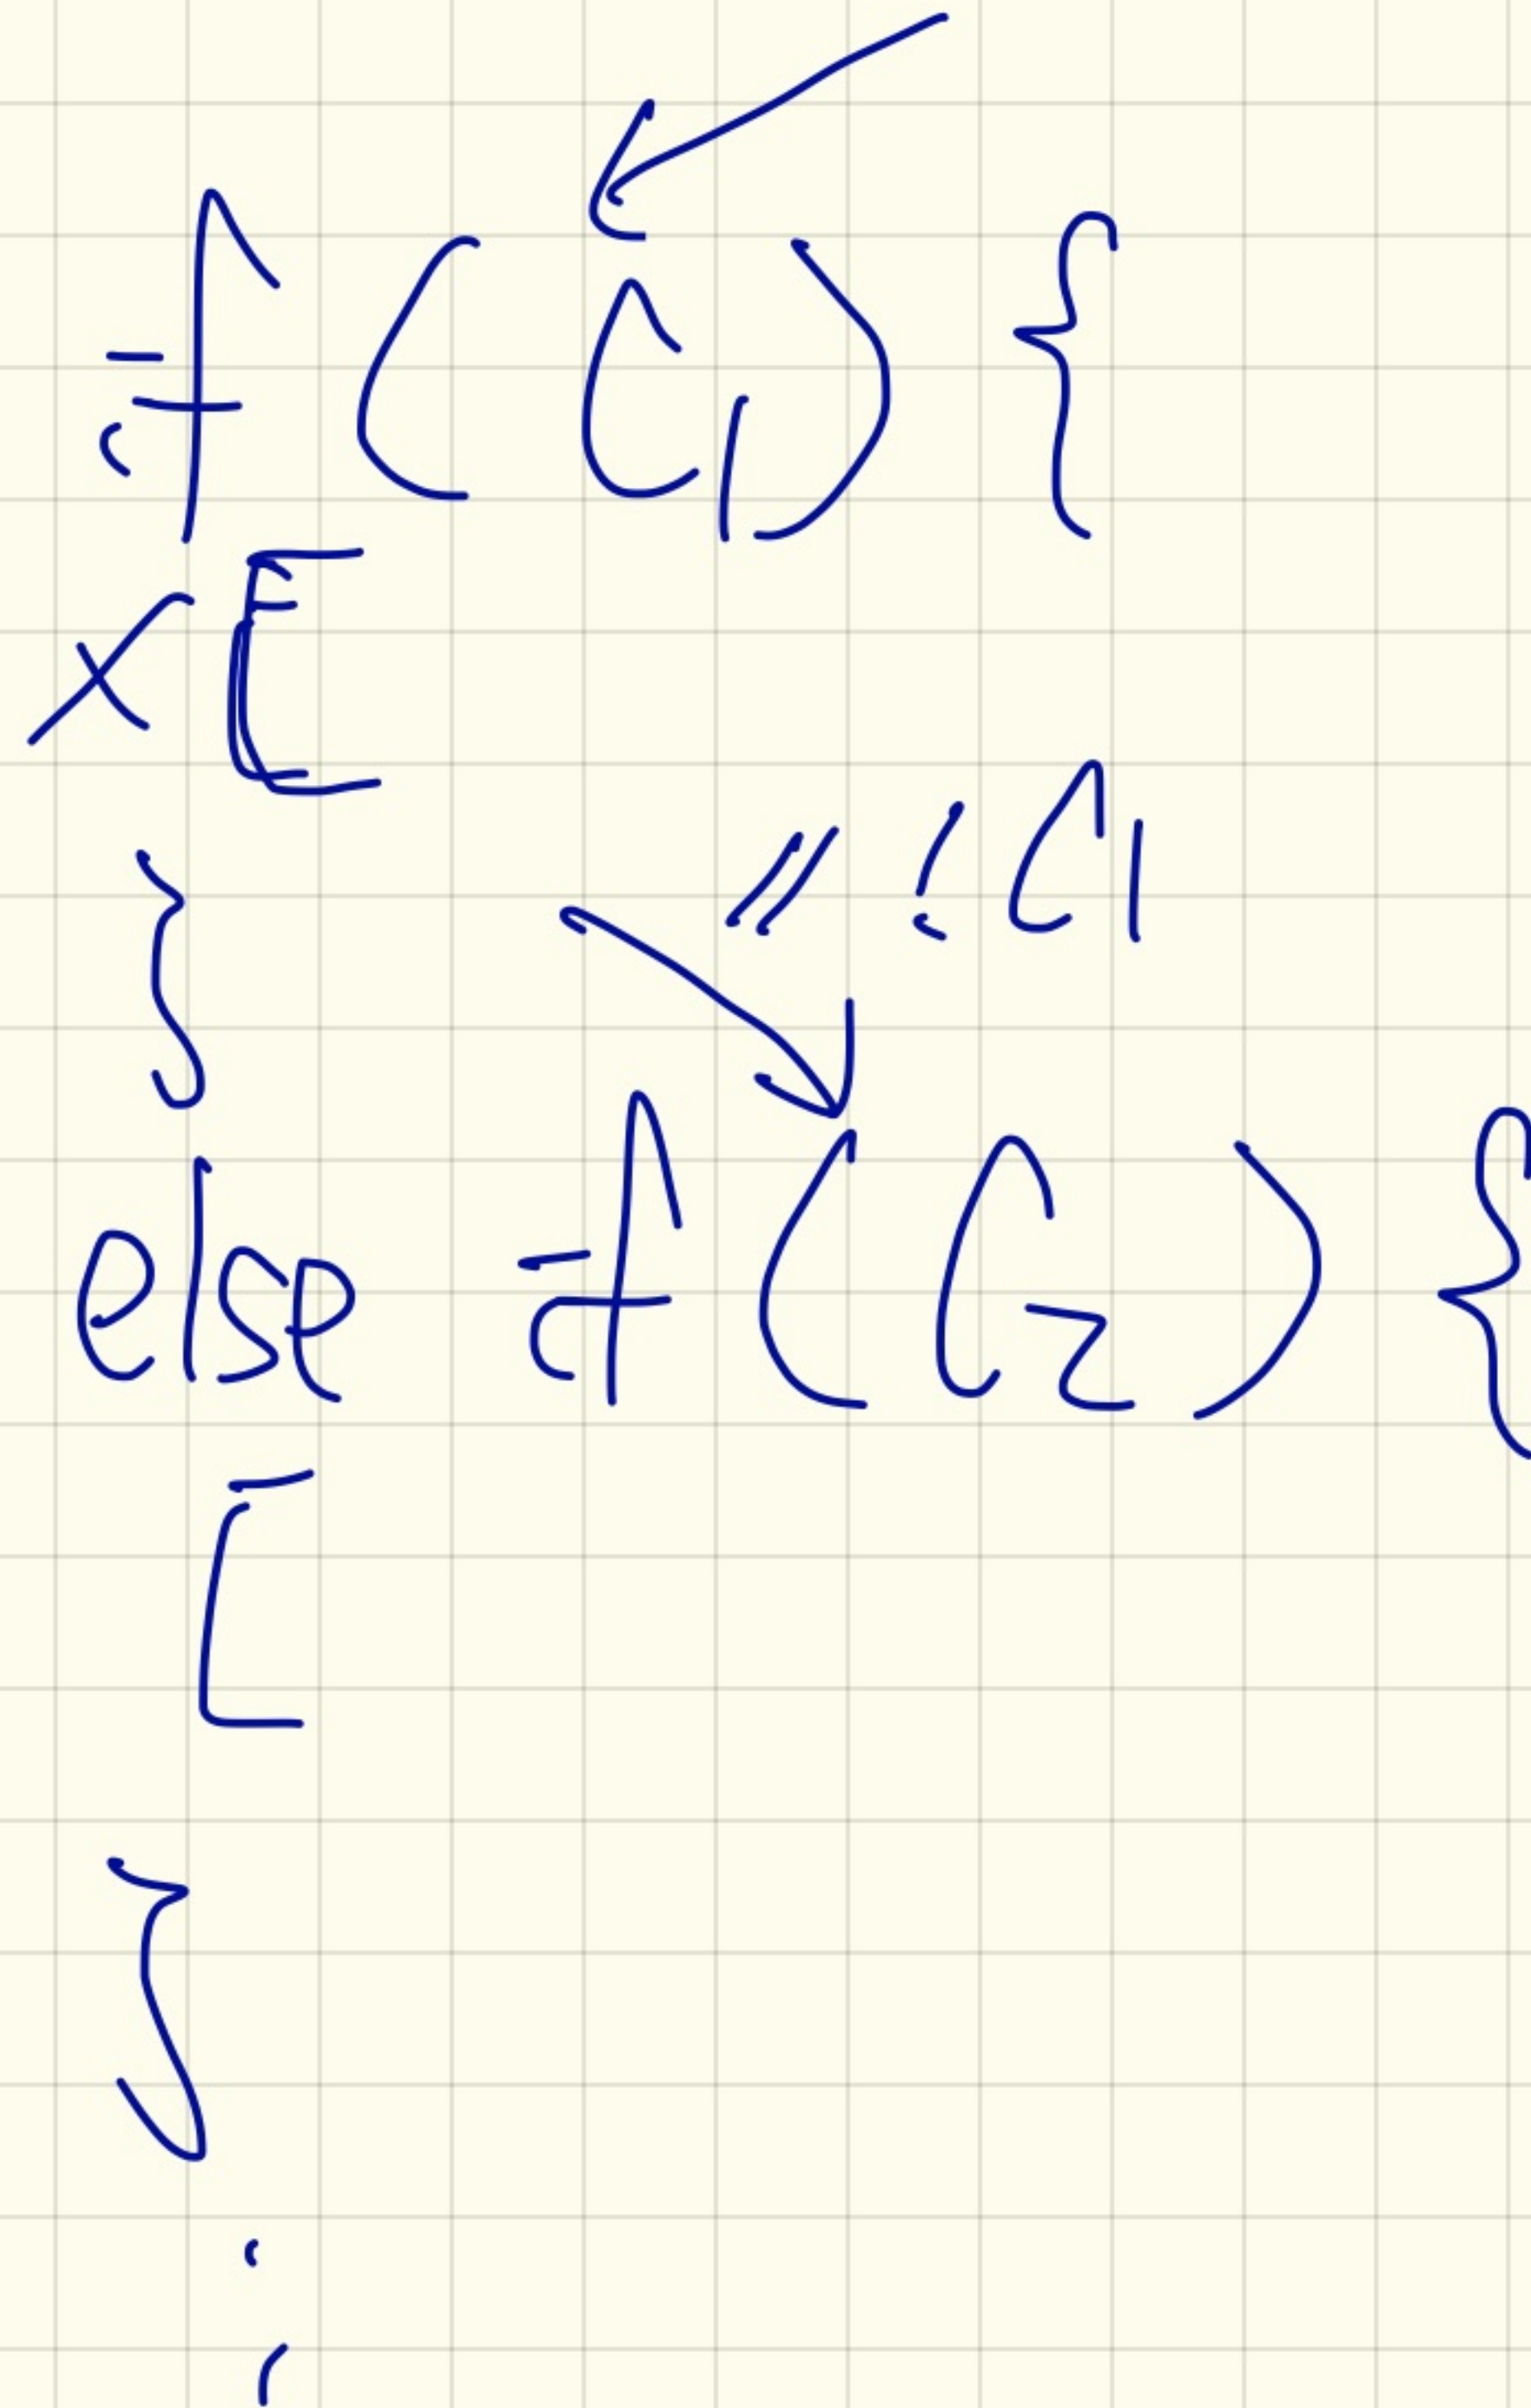 if (C1) {
X [
} // !C1
else if (C2) {
[
}